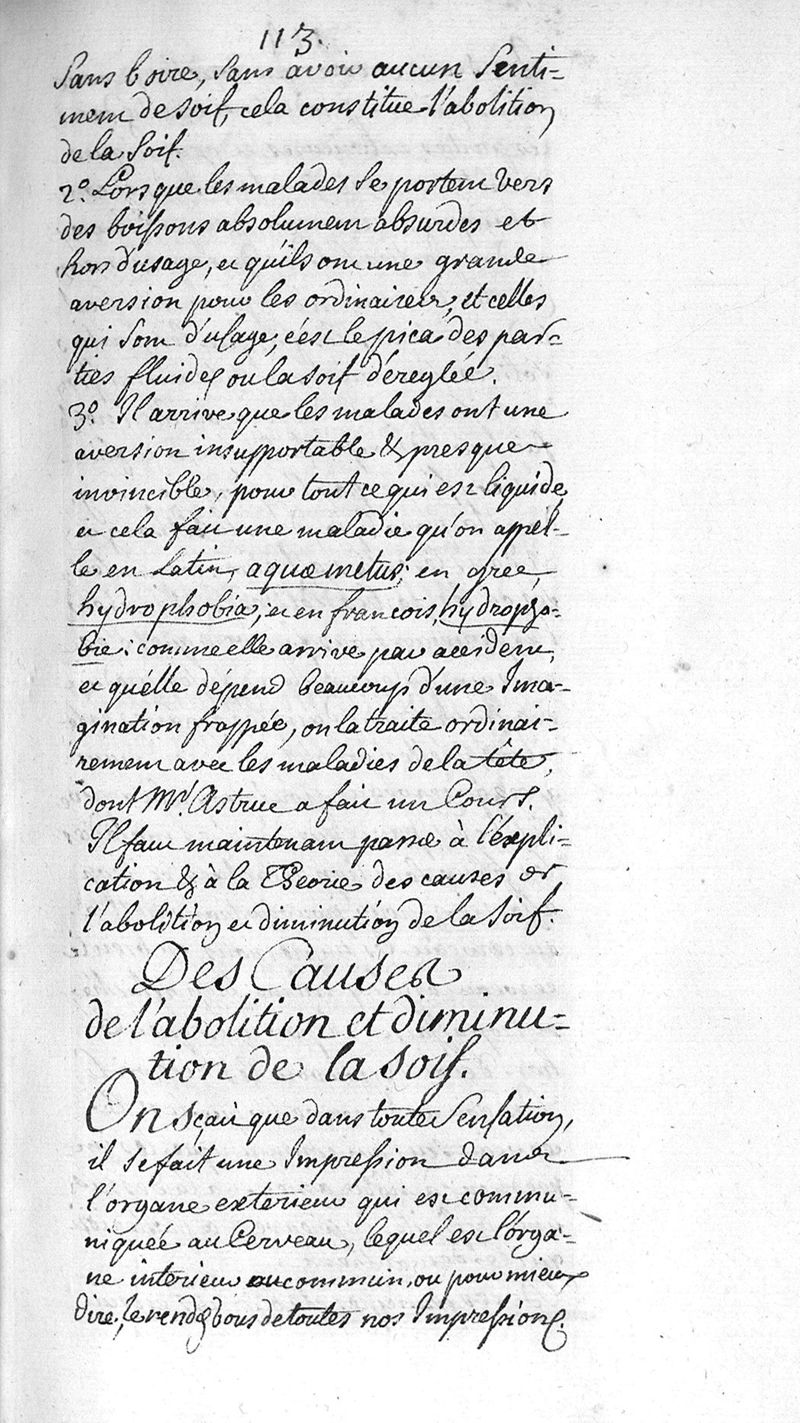 113.
Sans boire, sans avoir aucun Senti=
ment de soif, cela constitue l'abolition
de la Soif.
2.º Lorsque les malades Se portent vers
des boissons absolument absurdes et
hors d'usage, et qu'ils ont une grande
aversion pour les ordinaires, et celles
qui Sont d'usage; c'est le pica des par=
ties fluides ou la soif déreglée.
3.º Il arrive que les malades ont une
aversion insupportable & presque
invincible, pour tout ce qui est liquide,
et cela fait une maladie qu'on appel=
le en Latin, aquæ metus; en grec,
hydrophobia, et en francois, hydropho=
bie: comme elle arrive par accident,
et qu'elle dépend beaucoup d'une Ima=
gination frappée, on la traite ordinai=
rement avec les maladies de la tête,
dont Mr. Astruc a fait un Cours.
Il faut maintenant passer à l'éxpli=
cation & à la Theorie des causes de
l'abolition et diminution de la Soif.
Des Causes
de l'abolition et diminu=
tion de la soif.
On sçait que dans toute Sensation,
il se fait une Impression dans
l'organe exterieur qui est commu=
niquée au Cerveau, lequel est l'orga=
ne interieur ou commun, ou pour mieux
dire, le rendés vous de toutes nos Impressions.